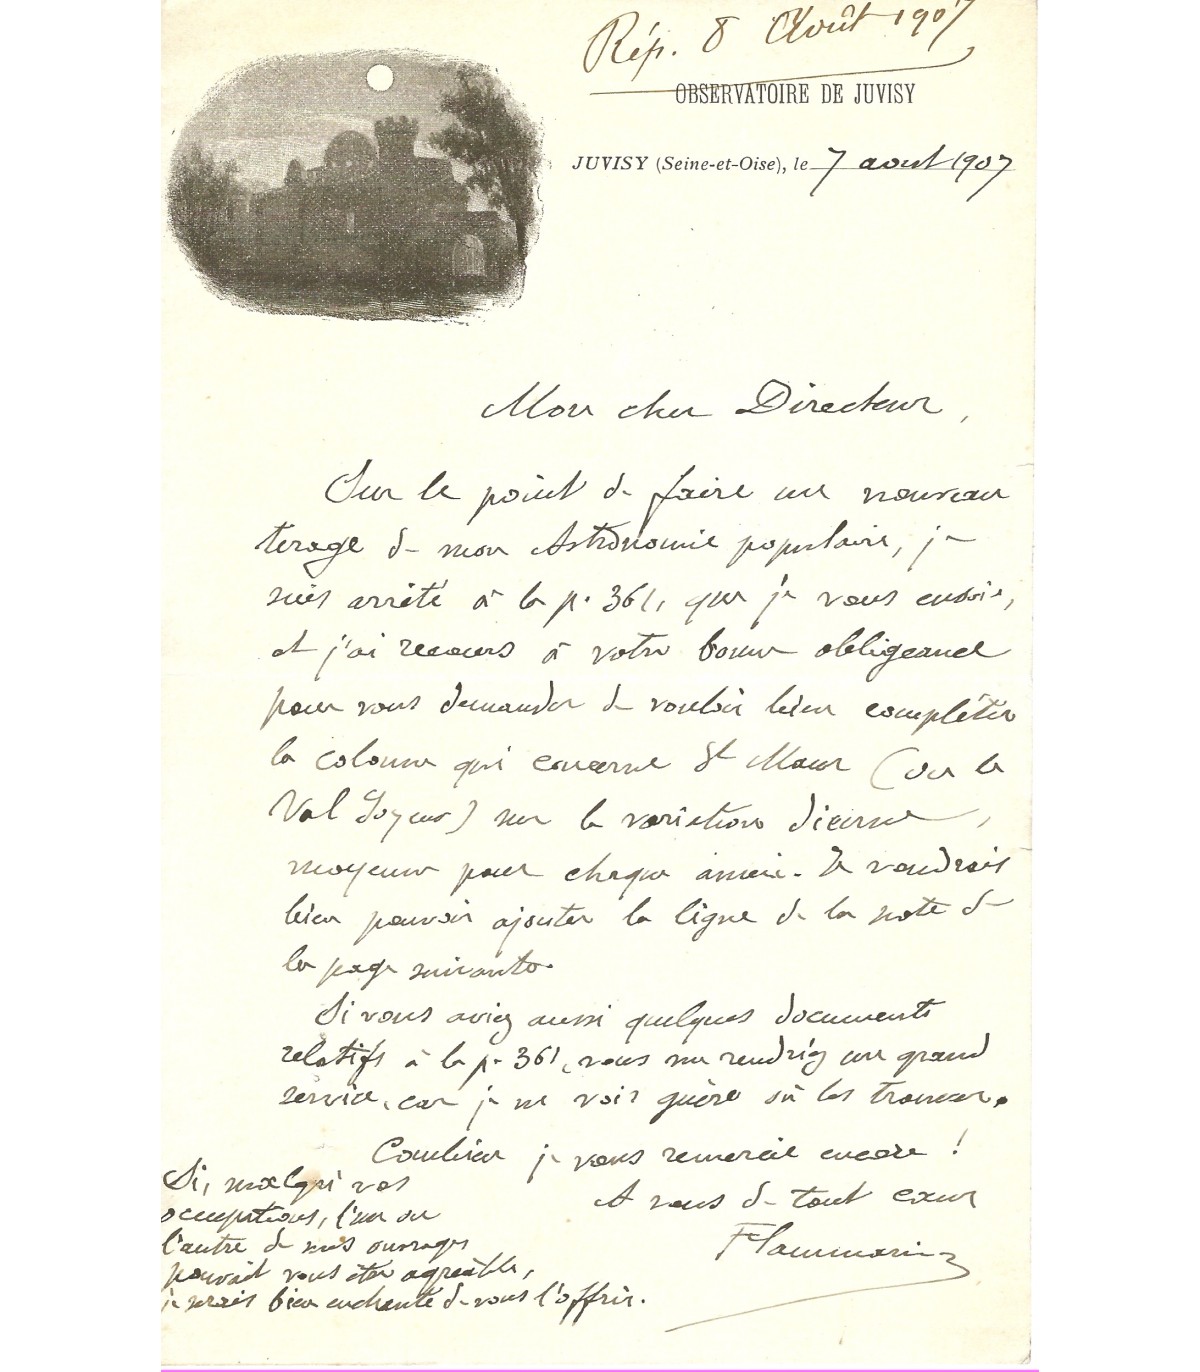 Rép. 8 Août 1907
OBSERVATOIRE DE JUVISY
JUVISY (Seine-et-Oise), le 7 aout 1907
Mon cher Directeur,
Sur le point de faire un nouveau
tirage de mon Astronomie populaire, je
suis arrêté à la p. 361, que je vous envoie,
et j'ai recours à votre bonne obligeance
pour vous demander de vouloir bien compléter
la colonne qui concerne St Maur (ou le
Val Joyeux) sur la variation diurne,
moyenne pour chaque année. Je voudrais
bien pouvoir ajouter la ligne de la note de
la page suivante.
Si vous aviez aussi quelques documents
relatifs à la p. 361, vous me rendriez un grand
service, car je ne vois guère où les trouver.
Combien je vous remercie encore !
A vous de tout cœur
Flammarion
Si, malgré vos
occupations, l'un ou
l'autre de mes ouvrages
pouvait vous être agréable,
je serais bien enchanté de vous l'offrir.